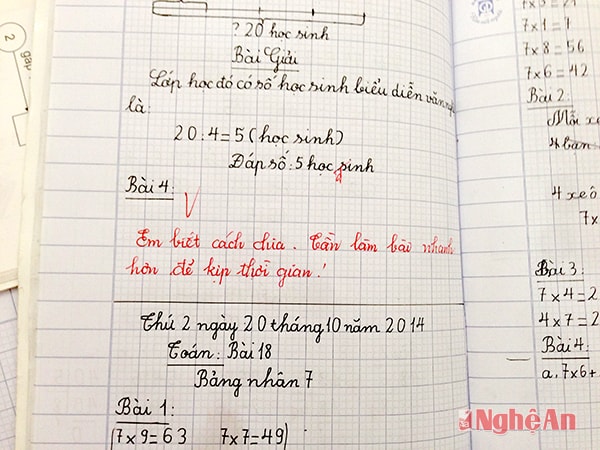 ? 20 học sinh
Bài Giải
Lớp học đó có số học sinh biểu diễn văn
là:
20 : 4 = 5 (học sinh)
Đáp số: 5 học sinh
Bài 4:
Em biết cách chia. Cần làm bài nhanh
hơn để kịp thời gian!
Thứ 2 ngày 20 tháng 10 năm 2014
Toán: Bài 18
Bảng nhân 7
Bài 1:
7 x 9 = 63 7 x 7 = 49
7 x 3 = 21
7 x 1 = 7
7 x 8 = 56
7 x 6 = 42
Bài 2
Mỗi xe
4 bàn
4 xe ô
7x
Bài 3:
7 x 4 = 2
4 x 7 = 2
Bài 4:
a, 7x6+
Nghệ An
2
gấp